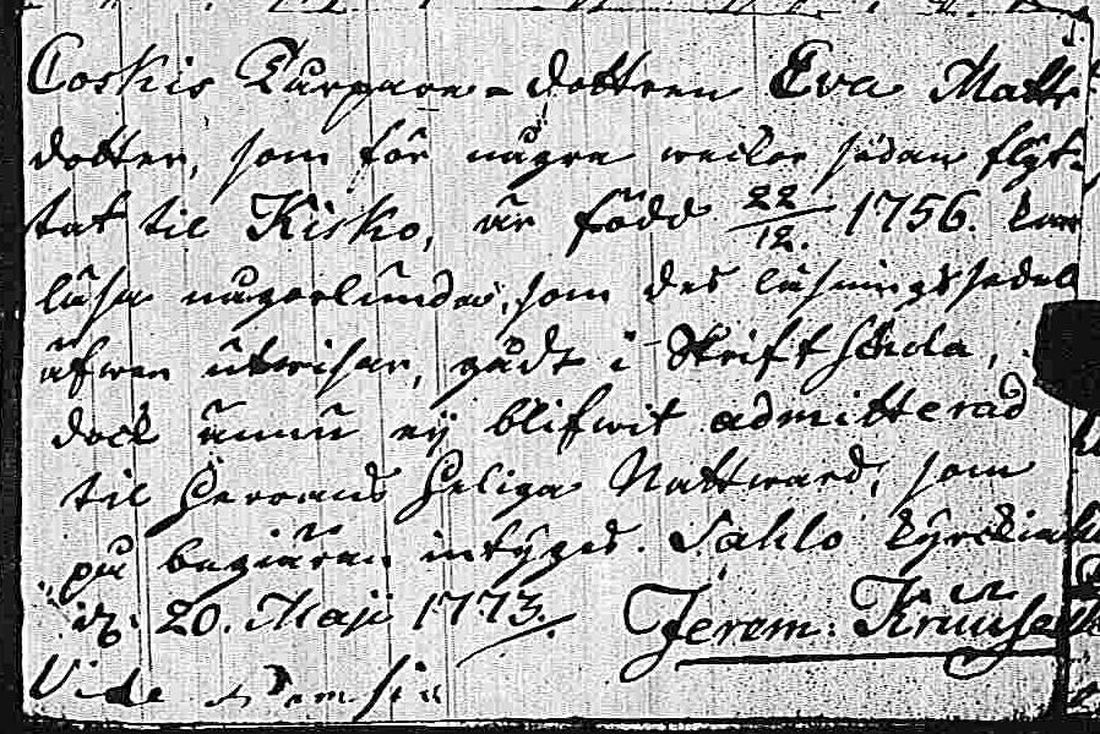 Coskis Torpare-dottren Eva Matts
dotter, som för några weckor sedan flyt-
tat til Kisko, är född 22/12. 1756. kan
läsa någorlunda, som des läsningssedel
äfwen utwisar, gådt i Skriftskola,
dock ännu ej blifwit admitterad
til Herrans Heliga Nattward, som
på begäran intygas. Sahlo kyrckioh
d. 20. Maji 1773. Jerem: Kruuse
Vide